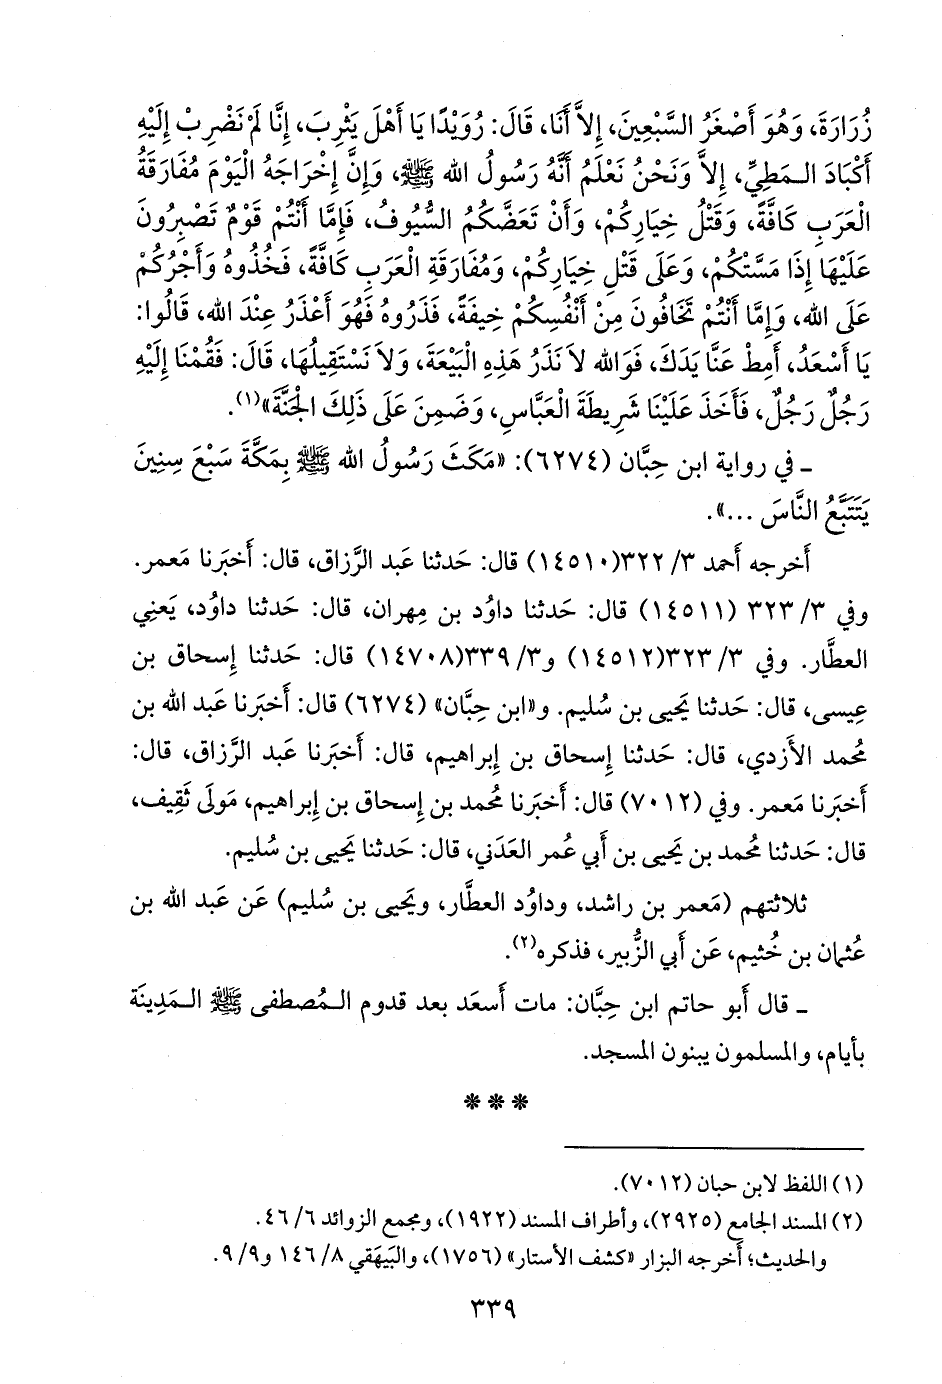 زُرَارَةَ، وَهُوَ أَصْغَرُ السَّبْعِينَ، إِلاَّ أَنَا، قَالَ: رُوَيْدًا يَا أَهْلَ يَثْرِبَ، إِنَّا لَمْ نَضْرِبْ إِلَيْهِ
أَكْبَادَ الـمَطِيِّ، إِلاَّ وَنَحْنُ نَعْلَمُ أَنَّهُ رَسُولُ الله ﷺ، وَإِنَّ إِخْرَاجَهُ الْيَوْمَ مُفَارَقَةُ
الْعَرَبِ كَافَّةً، وَقَتْلُ خِيَارِكُمْ، وَأَنْ تَعَضَّكُمُ السُّيُوفُ، فَإِمَّا أَنْتُمْ قَوْمٌ تَصْبِرُونَ
عَلَيْهَا إِذَا مَسَّتْكُمْ، وَعَلَى قَتْلِ خِيَارِكُمْ، وَمُفَارَقَةِ الْعَرَبِ كَافَّةً، فَخُذُوهُ وَأَجْرُكُمْ
عَلَى الله، وَإِمَّا أَنْتُمْ تَخَافُونَ مِنْ أَنْفُسِكُمْ خِيفَةً، فَذَرُوهُ فَهُوَ أَعْذَرُ عِنْدَ الله، قَالُوا:
يَا أَسْعَدُ، أَمِطْ عَنَّا يَدَكَ، فَوَالله لاَ نَذَرُ هَذِهِ الْبَيْعَةَ، وَلاَ نَسْتَقِيلُهَا، قَالَ: فَقُمْنَا إِلَيْهِ
رَجُلٌ رَجُلٌ، فَأَخَذَ عَلَيْنَا شَرِيطَةَ الْعَبَّاسِ، وَضَمِنَ عَلَى ذَلِكَ الْجَنَّةَ»(١).
ـ في رواية ابن حِبَّان (٦٢٧٤): «مَكَثَ رَسُولُ الله ﷺ بِمَكَّةَ سَبْعَ سِنِينَ
يَتَتَبَّعُ النَّاسَ ...».
أَخرجه أَحمد ٣/ ٣٢٢(١٤٥١٠) قال: حَدثنا عَبد الرَّزاق، قال: أَخبَرنا مَعمر.
وفي ٣/ ٣٢٣ (١٤٥١١) قال: حَدثنا داوُد بن مِهران، قال: حَدثنا داوُد، يَعنِي
العطَّار. وفي ٣/ ٣٢٣(١٤٥١٢) و٣/ ٣٣٩(١٤٧٠٨) قال: حَدثنا إِسحاق بن
عِيسى، قال: حَدثنا يَحيى بن سُليم. و«ابن حِبَّان» (٦٢٧٤) قال: أَخبَرنا عَبد الله بن
مُحمد الأَزدي، قال: حَدثنا إِسحاق بن إِبراهيم، قال: أَخبَرنا عَبد الرَّزاق، قال:
أَخبَرنا مَعمر. وفي (٧٠١٢) قال: أَخبَرنا مُحمد بن إِسحاق بن إِبراهيم، مَولَى ثَقِيف،
قال: حَدثنا مُحمد بن يَحيى بن أَبي عُمر العَدَني، قال: حَدثنا يَحيى بن سُليم.
ثلاثتهم (مَعمر بن راشد، وداوُد العطَّار، ويَحيى بن سُليم) عَن عَبد الله بن
عُثمان بن خُثيم، عَن أَبي الزُّبير، فذكره(٢).
ـ قال أَبو حاتم ابن حِبَّان: مات أَسعَد بعد قدوم الـمُصطفى ﷺ الـمَدِينَة
بأَيام، والمسلمون يبنون المسجد.
***
(١) اللفظ لابن حبان (٧٠١٢).
(٢) المسند الجامع (٢٩٢٥)، وأطراف المسند (١٩٢٢)، ومجمع الزوائد ٦/ ٤٦.
والحديث؛ أَخرجه البزار «كشف الأستار» (١٧٥٦)، والبَيهَقي ٨/ ١٤٦ و٩/ ٩.
٣٣٩